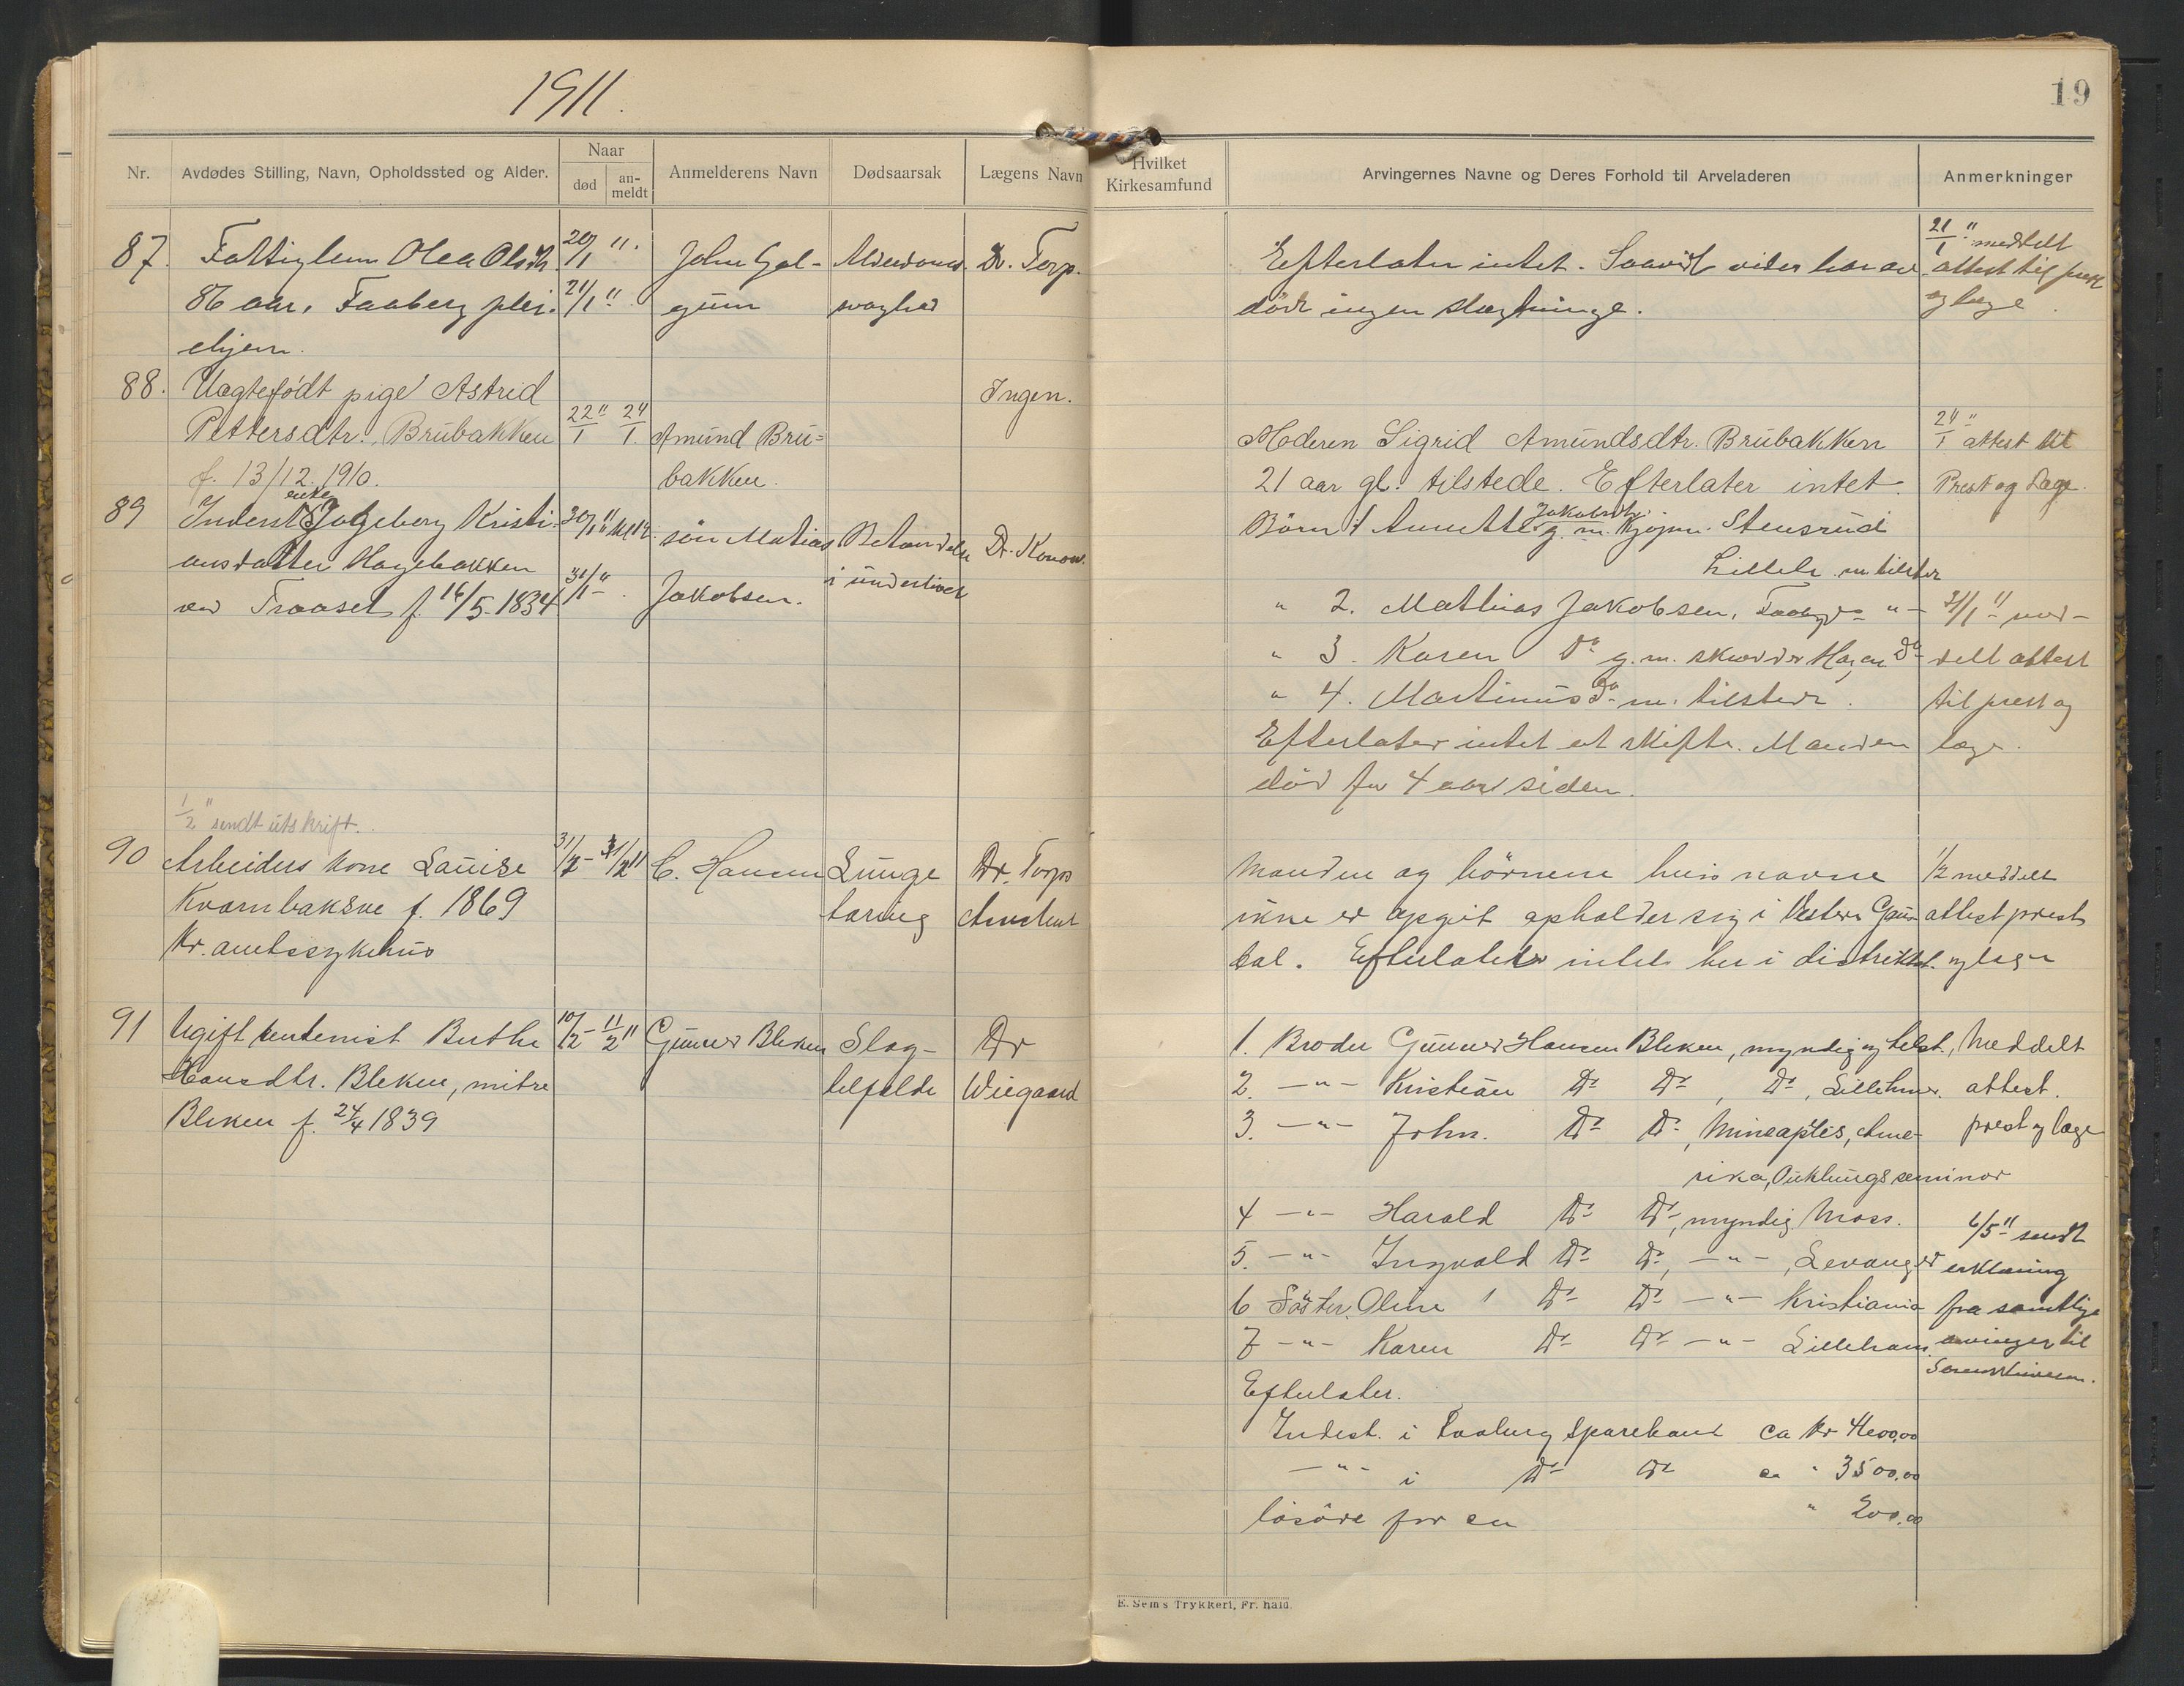 1911.
19
Nr.
Avdødes Stilling, Navn, Opholdssted og Alder.
Naar
død
an-
meldt
Anmelderens Navn
Dødsaarsak
Lægens Navn
Hvilket
Kirkesamfund
Arvingernes Navne og Deres Forhold til Arveladeren
Anmerkninger
87. Fattiglem Olea Olsdtr.
86 aar, Faaberg plei-
ehjem.
20/1 11.
21/1 "
John Gal-
gum
Alderdoms-
svaghed
Dr. Torp.
Efterlater intet. Saavidt vides har av-
döde ingen slægtninge.
21/1 " meddelt
attest til prest
og læge
88. Uægtefödt pige Astrid
Pettersdtr. Brubakken
f. 13/12 1910.
22/1 " 24/1
Amund Bru=
bakken.
Ingen.
Moderen Sigrid Amundsdtr. Brubakken
21 aar gl. tilstede. Efterlater intet.
24/1 " attest til
Prest og Læge.
89 Inderst enke Ingeborg Kristi-
ansdatter Hagebakken
ved Traaset f. 16/5 1834
30/1 11
31/1 "
sön Matias
Jakobsen.
Betændelse
i underlivet
Dr. Konow.
Börn 1 Annette Jakobsdtr. g. m. Kjöpm. Stensrud
Lilleh. m. tilstede
" 2. Mathias Jakobsen, Faaberg "
" 3. Karen Do g. m. skrædder Hagen Do
" 4. Martinus Do m. tilstede.
Efterlater intet at skifte. Manden
död for 4 aar siden.
31/1 11 med-
delt attest
til prest og
læge.
1/2 " sendt utskrift.
90 Arbeiders kone Lauise
Kvarnbaksve f. 1869
Kr. amtssykehus
31/2 - 31/2 11
C. Hansen
Lunge
tæring
Dr. Torps
Manden og börnene hvis navne
ikke er opgit opholder sig i Vestre Gaus-
dal. Efterlater intet her i distriktet.
1/2 meddelt
attest prest
og læge
91 Ugift Berthe
Hansdtr. Bleken, nitre
Bleken f. 24/4 1839
10/2 - 11/2 11
Gunner Bleken
Slag-
tilfælde
Dr
Wiegaard
1. Broder Gunner Hansen Bleken, myndig og tilst.,
2. - " - Kristian Do Do, Do, Lillehmr.
3. - " - John. Do Do, Mineaplis, Ame-
rika, seminar
4 - " - Harald Do Do, myndig Moss.
5. - " - Ingvald Do Do, - " -, Levanger
6 Söster Oline Do Do - " - Kristiania
7 - " - Karen Do Do - " - Lilleham.
Efterlater.
Indest. i Faaberg Sparebank ca kr 4000,00
- " - i Do Do ca " 3500,00
lösöre for ca " 200,00
Meddelt
attest.
prest og læge
6/5 11 sendt
erklæring
fra samtlige
arvinger til
Sorenskriveren.
E. Sem's Trykkeri, Fr. hald.